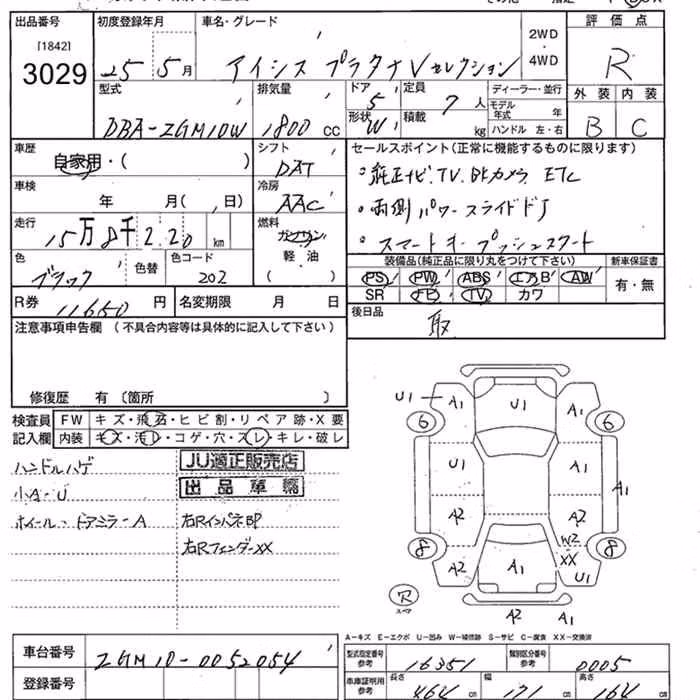 出品番号 初度登録年月 車名・グレード 評価点
[1842]
3029 25 5月 アイシス プラタナ Vセレクション 2WD・4WD R
型式 排気量 ドア 5 定員 7人 ディーラー・並行 外装 内装
DBA-ZGM10W 1800cc 形状 W 積載 kg モデル年式 年 ハンドル 左・右 B C
車歴 自家用・( ) シフト DAT セールスポイント(正常に機能するものに限ります)
車検 年 月( 日) 冷房 AAC 。純正ナビ.TV.Bカメラ ETC
走行 15万8千220km 燃料 ガソリン 軽油 ( ) ・両側パワースライドドア
・スマートキー プッシュスタート
色 ブラック 色替 色コード 202 装備品(純正品に限り丸をつけて下さい) 新車保証書
PS PW ABS エアB AW 有・無
R券 11650円 名変期限 月 日 SR TV カワ
注意事項申告欄 (不具合内容等は具体的に記入して下さい) 後日品 取
修復歴 有〔箇所 〕
検査員 FW キズ・飛石・ヒビ割・リペア跡・X要
記入欄 内装 キズ・汚レ・コゲ・穴・スレ・キレ・破レ
ハンドルハゲ JU適正販売店
小A-U 出品車輌
ホイール・ドアミラーA 右Rインパネ
右RフェンダーXX
U1 A1 U1 A1
6 6
U1 A1 A1
A2 A2
8 W2 8
A2 A1 XX U1
穴 スペア A2 A1
A-キズ E-エクボ U-凹み W-補修跡 S-サビ C-腐食 XX-交換済
車台番号 ZGM10-0052054 型式指定番号 参考 16351 類別区分番号 参考 0005
登録番号 車庫証明用 参考 長さ 464cm 幅 171cm 高さ 164cm